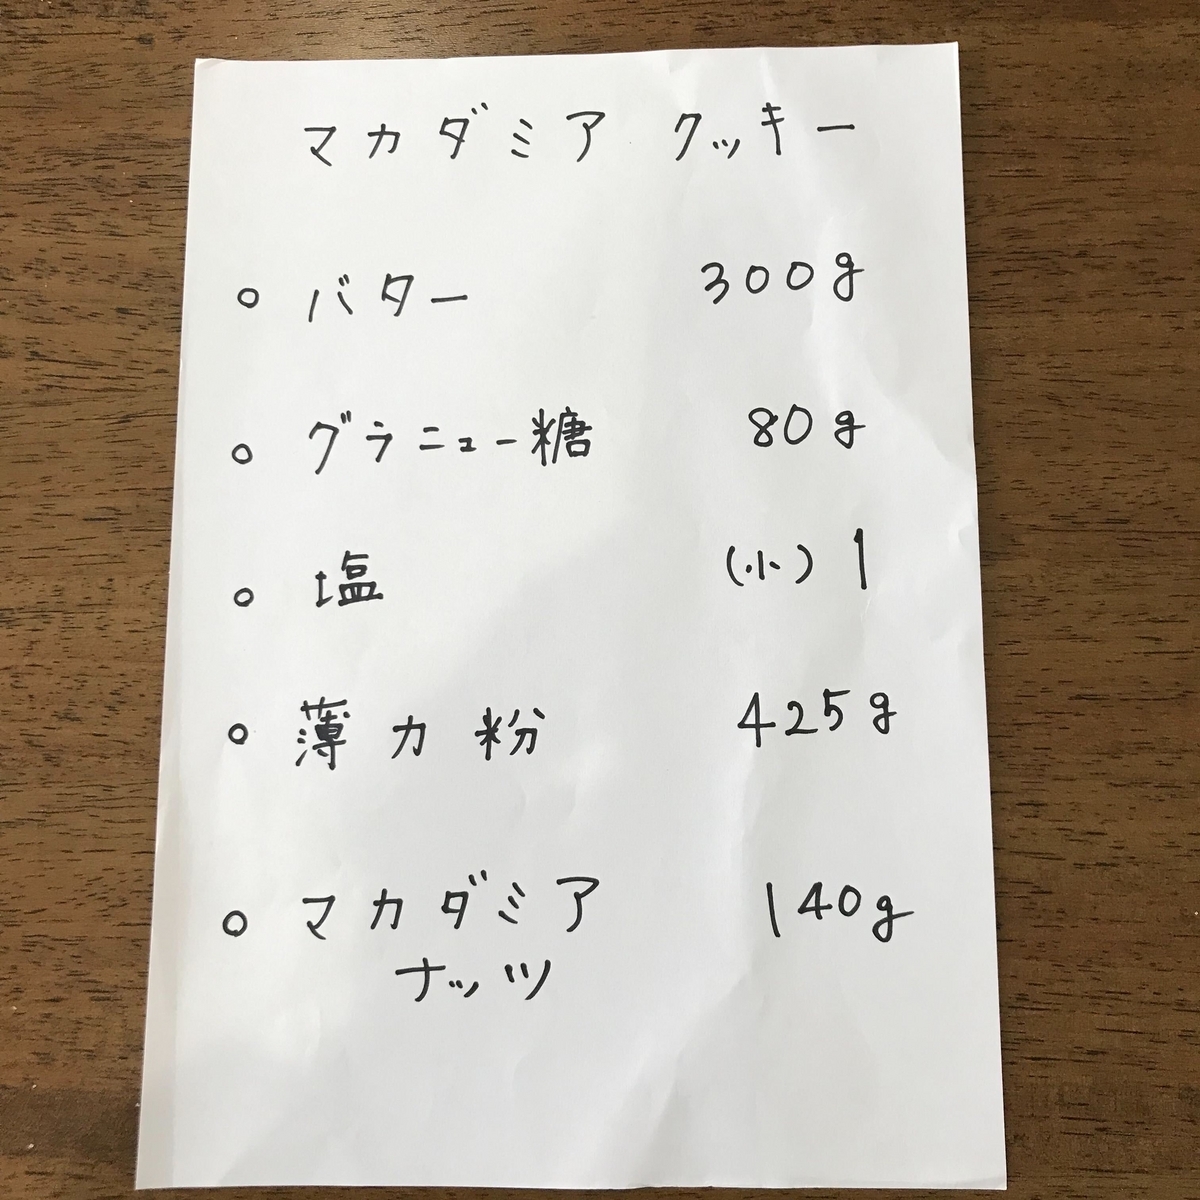 マカダミア クッキー
○ バター 300g
○ グラニュー糖 80g
○ 塩 (小) 1
○ 薄力粉 425g
○ マカダミア 140g
ナッツ